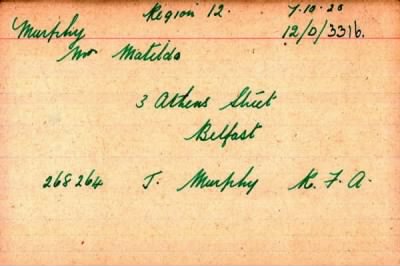 Region 12. 7.10.26
Murphy 12/D/3316.
Mrs Matilda
3 Athens Street
Belfast
268264 J. Murphy R.F.A.